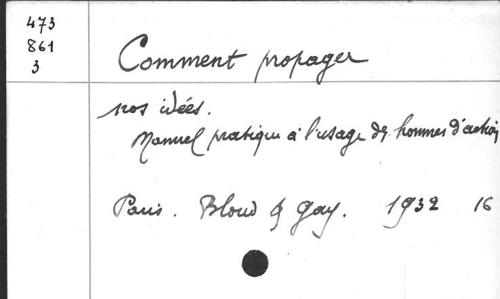 473
861
3
Comment propager
nos idées.
Manuel pratique à l'usage des hommes d'action
Paris. Bloud & Gay. 1932 16